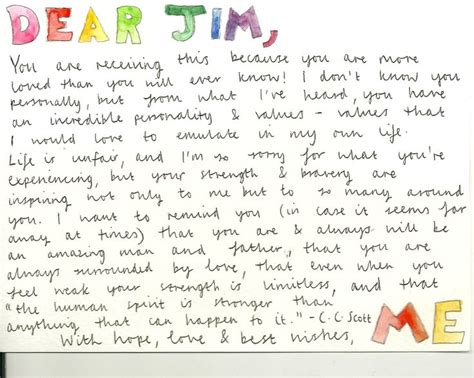 DEAR JIM,
You are receiving this because you are more
loved than you will ever know! I don't know you
personally, but from what I've heard, you have
an incredible personality & values - values that
I would love to emulate in my own life.
Life is unfair, and I'm so sorry for what you're
experiencing, but your strength & bravery are
inspiring not only to me but to so many around
you. I want to remind you (in case it seems far
away at times) that you are & always will be
an amazing man and father, that you are
always surrounded by love, that even when you
feel weak your strength is limitless, and that
"the human spirit is stronger than
anything that can happen to it." - C.C. Scott
With hope, love & best wishes, ME